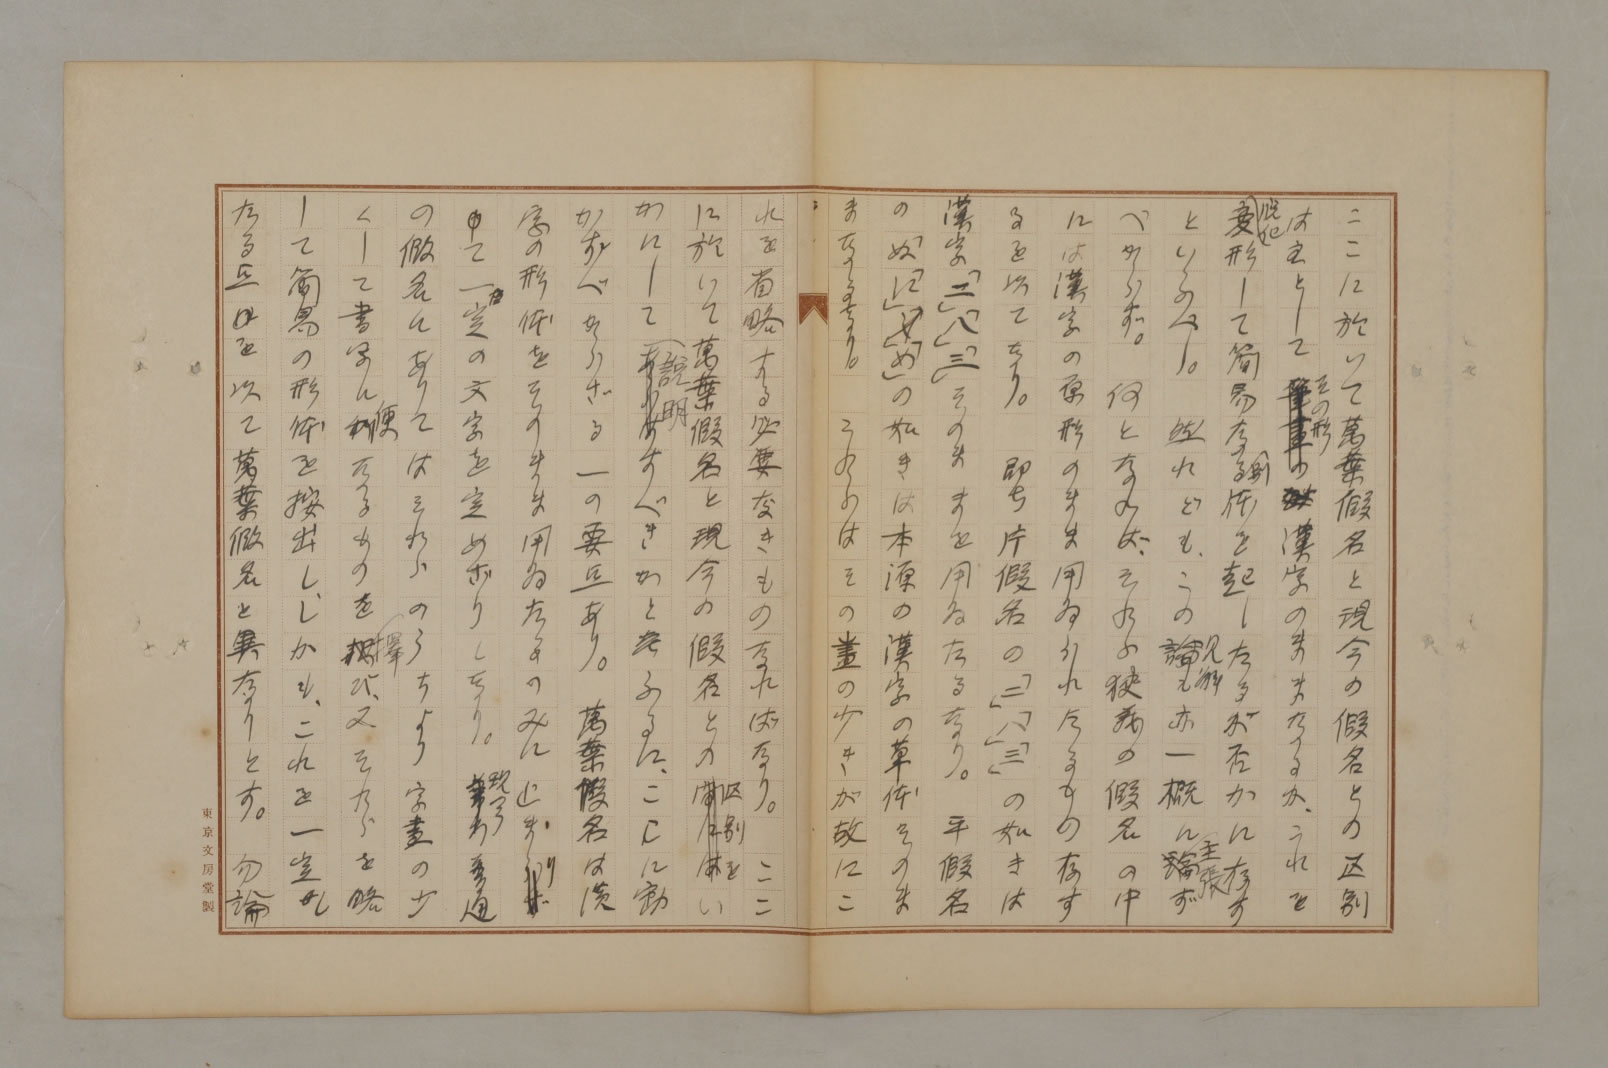 ここに於いて萬葉假名と現今の假名との区別
は主としてその形漢字のまゝなるか、これを
變形して簡易なる別体を起したるが否かに存す
といふべし。然れども、この見解も亦一概に主張ず
べからず。何となれば、それら狹義の假名の中
には漢字の原形のまま用ゐられたるもの存す
るを以てなり。即ち片假名の「二」「八」「三」の如きは
漢字「二」「八」「三」そのまゝを用ゐたるなり。平假名
の「ぬ」「に」「め」の如きは本源の漢字の草体そのま
まなるなり。これらはその畫の少きが故にこ
れを省略する必要なきものなればなり。ここ
に於いて萬葉假名と現今の假名との区別をい
かにして説明すべきかと考ふるに、ここに動
かすべからざる一の要点あり。萬葉假名は漢
字の形体をそのまま用ゐたるのみに止まり
て一定の文字を定めざりしなり。現今普通
の假名にありてはそれらのうちより字畫の少
くして書冩に便なるものを擇び、又それらを略
して簡易の形体を按出し、しかも、これを一定し
たる点を以て萬葉假名と異なりとす。勿論
東京文房堂製